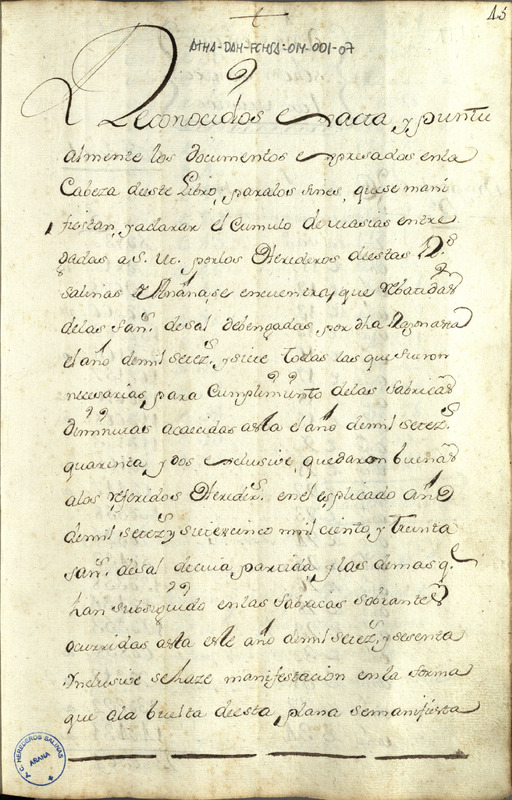 15
ATHA-DAH-FCHSA-014-001-07
Reconocidos exacta, y puntu
almente los documentos expresados enla
Cabeza deeste Libro, paralos fines, quese mani
fiestan, y aclarar el Cumulo de
dadas a S. M. porlos Herederos deestas R.s
Salinas de Añana, se encuentra, que rebatidas
delas fan.s desal debengadas, por dha
el año demil setez.s y siete todas las que fueron
necesarias, para Cumplimiento delas fabricas
diminutas acaecidas asta el año demil setez.s
quarenta y dos exclusive, quedaron buenas
alos referidos Hereder.s en el esplicado año
demil setez.s y siete cinco mil ciento y treinta
fan.s desal decuia partida, y las demas q.e
han subseguido enlas fabricas sobrantes
ocurridas asta este año demil setez.s y sesenta
Inclusive sehaze manifestacion en la forma
que ala buelta deesta plana semanifiesta
A.C. HEREDEROS SALINAS
AÑANA